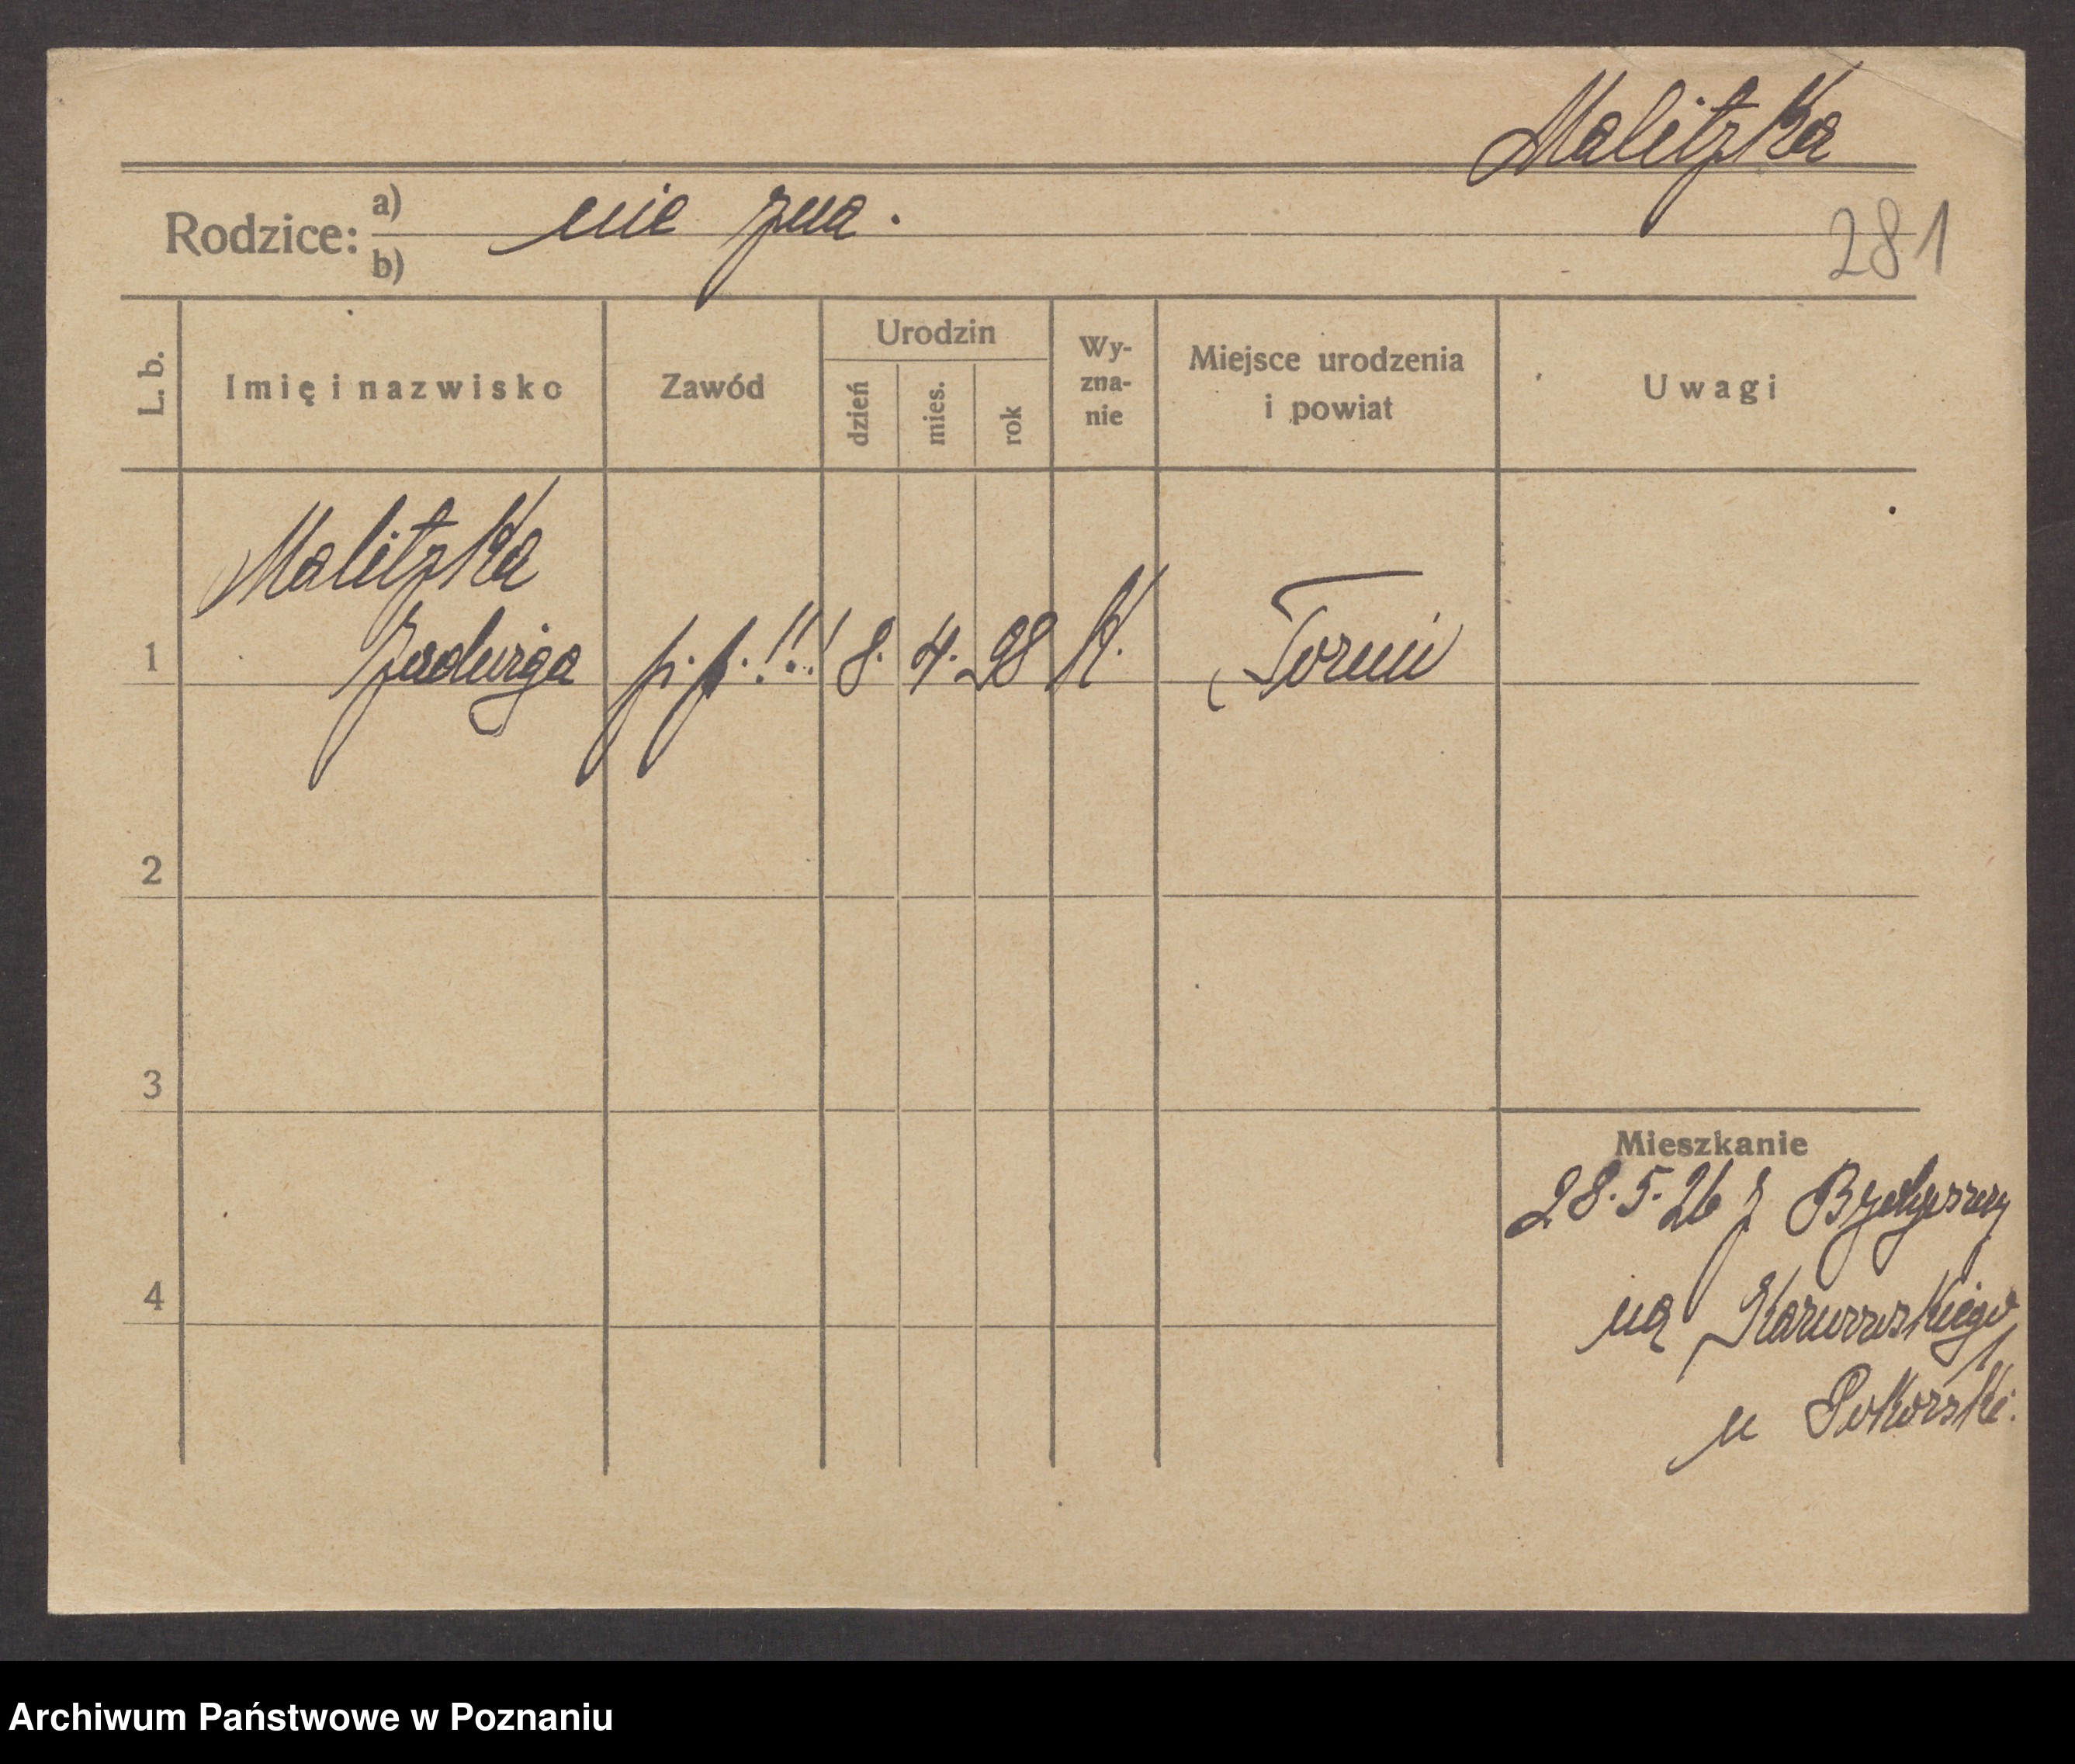 Malitzka
Rodzice: a) nie zna.
b)
281
L. b.
Imię i nazwisko
Zawód
Urodzin
dzień
mies.
rok
Wy-
zna-
nie
Miejsce urodzenia
i powiat
Uwagi
Malitzka
1 Jadwiga p. p. !!! 8. 4. 98 K. Toruń
2
3
4
Mieszkanie
28.5.26 z Bydgoszczy
na
u Pokorski.
Archiwum Państwowe w Poznaniu